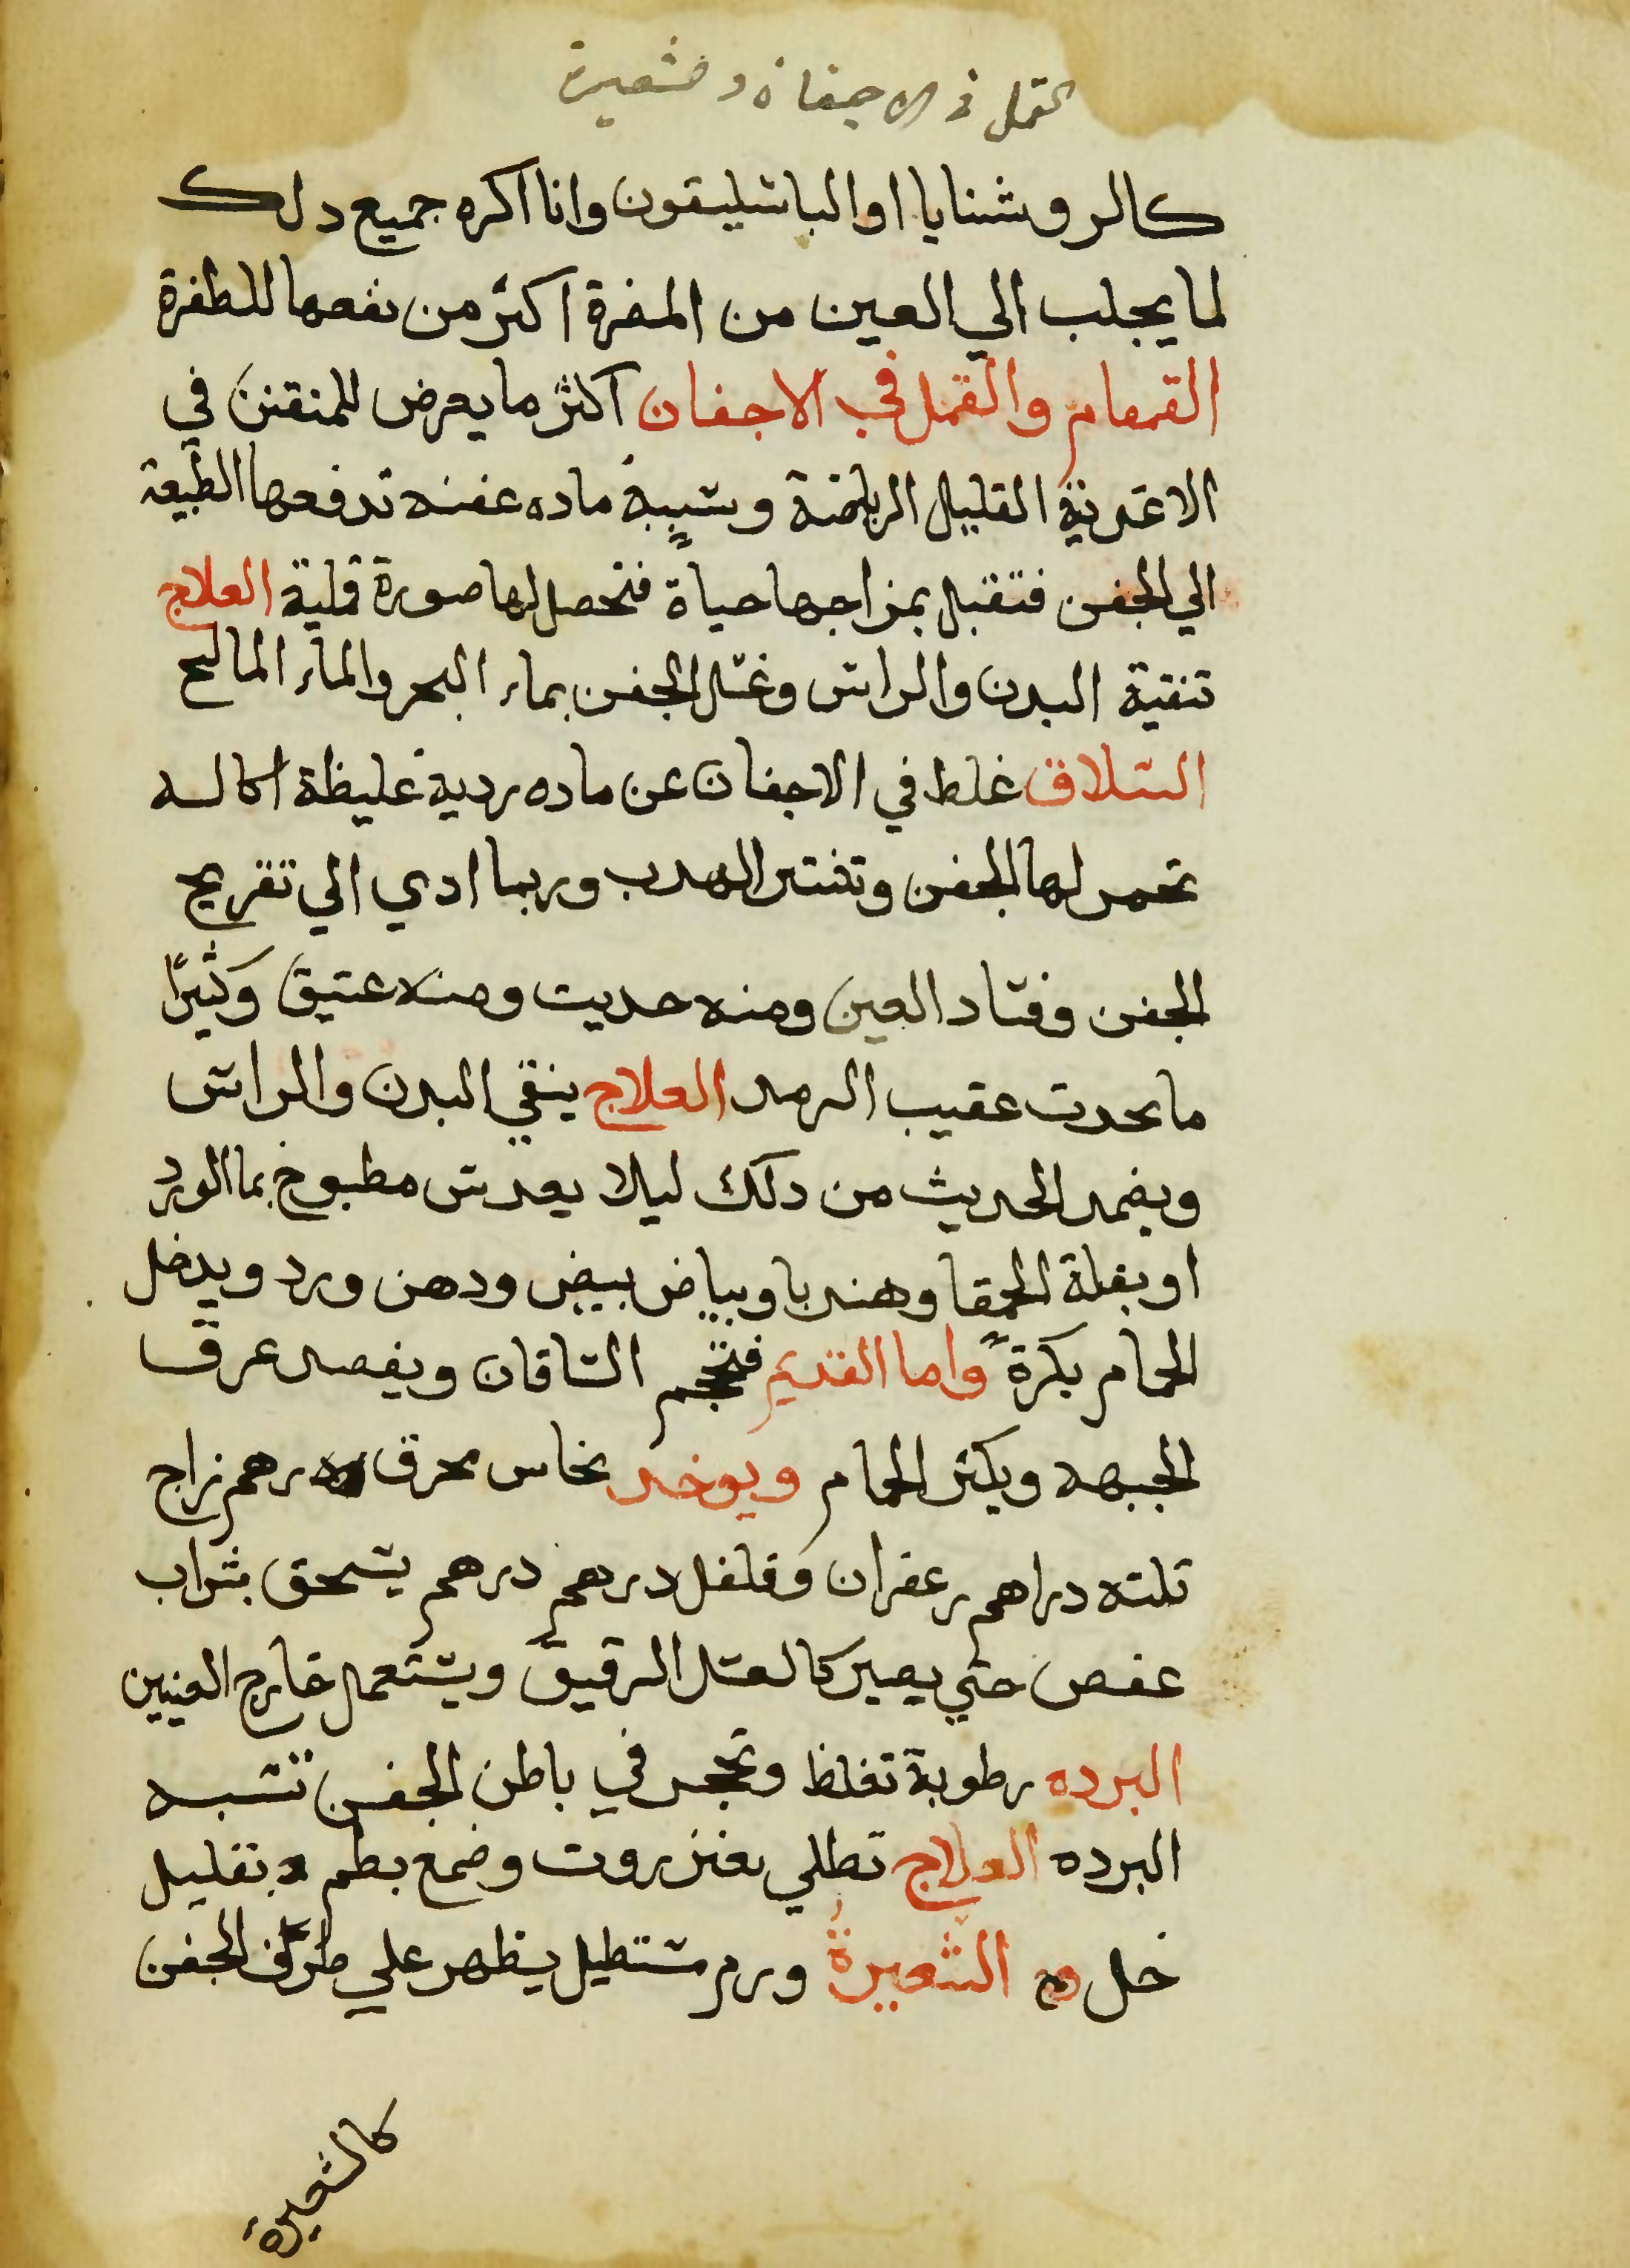 القمل في الاجفان و شعيرة
كالروشنايا او الباسليقون وانا اكره جميع دلك
لما يجلب الي العين من المضرة اكثر من نفعها للظفرة
القمقام والقمل في الاجفان اكثر ما يعرض للمتفنن في
الاغدية القليل الرياضة وسببه ماده عفنه تدفعها الطبيعة
الي الجفن فتقبل بمزاجها حياة فتحصل لها صورة قملية العلاج
تنقية البدن والراس وغسل الجفن بماء البحر والماء المالح
السلاق غلط في الاجفان عن ماده ردية غليظة اكاله
تحمر لها الجفن وتنتثر الهدب وربما ادي الي تقريح
الجفن وفساد العين ومنه حديت ومنه عتيق وكثيرًا
ما يحدت عقيب الرمد العلاج ينقي البدن والراس
ويضمد الحديث من دلك ليلا بعدس مطبوخ بما الورد
او بقلة الحمقا وهندبا وبياض بيض ودهن ورد ويدخل
الحمام بكرةً واما القديم فتحجم الساقان ويفصد عرق
الجبهه ويكثر الحمام ويوخد نحاس محرق درهم زاج
تلته دراهم زعفران وفلفل درهم درهم يسحق بشراب
عفص حتي يصير كالعسل الرقيق ويستعمل خارج العينين
البرده رطوبة تغلظ وتحجر في باطن الجفن تشبه
البرده العلاج تطلي بعنزروت وصمغ بطم بقليل
خل الشعيرة ورم مستطيل يظهر علي طرف الجفن
كالشعيرة